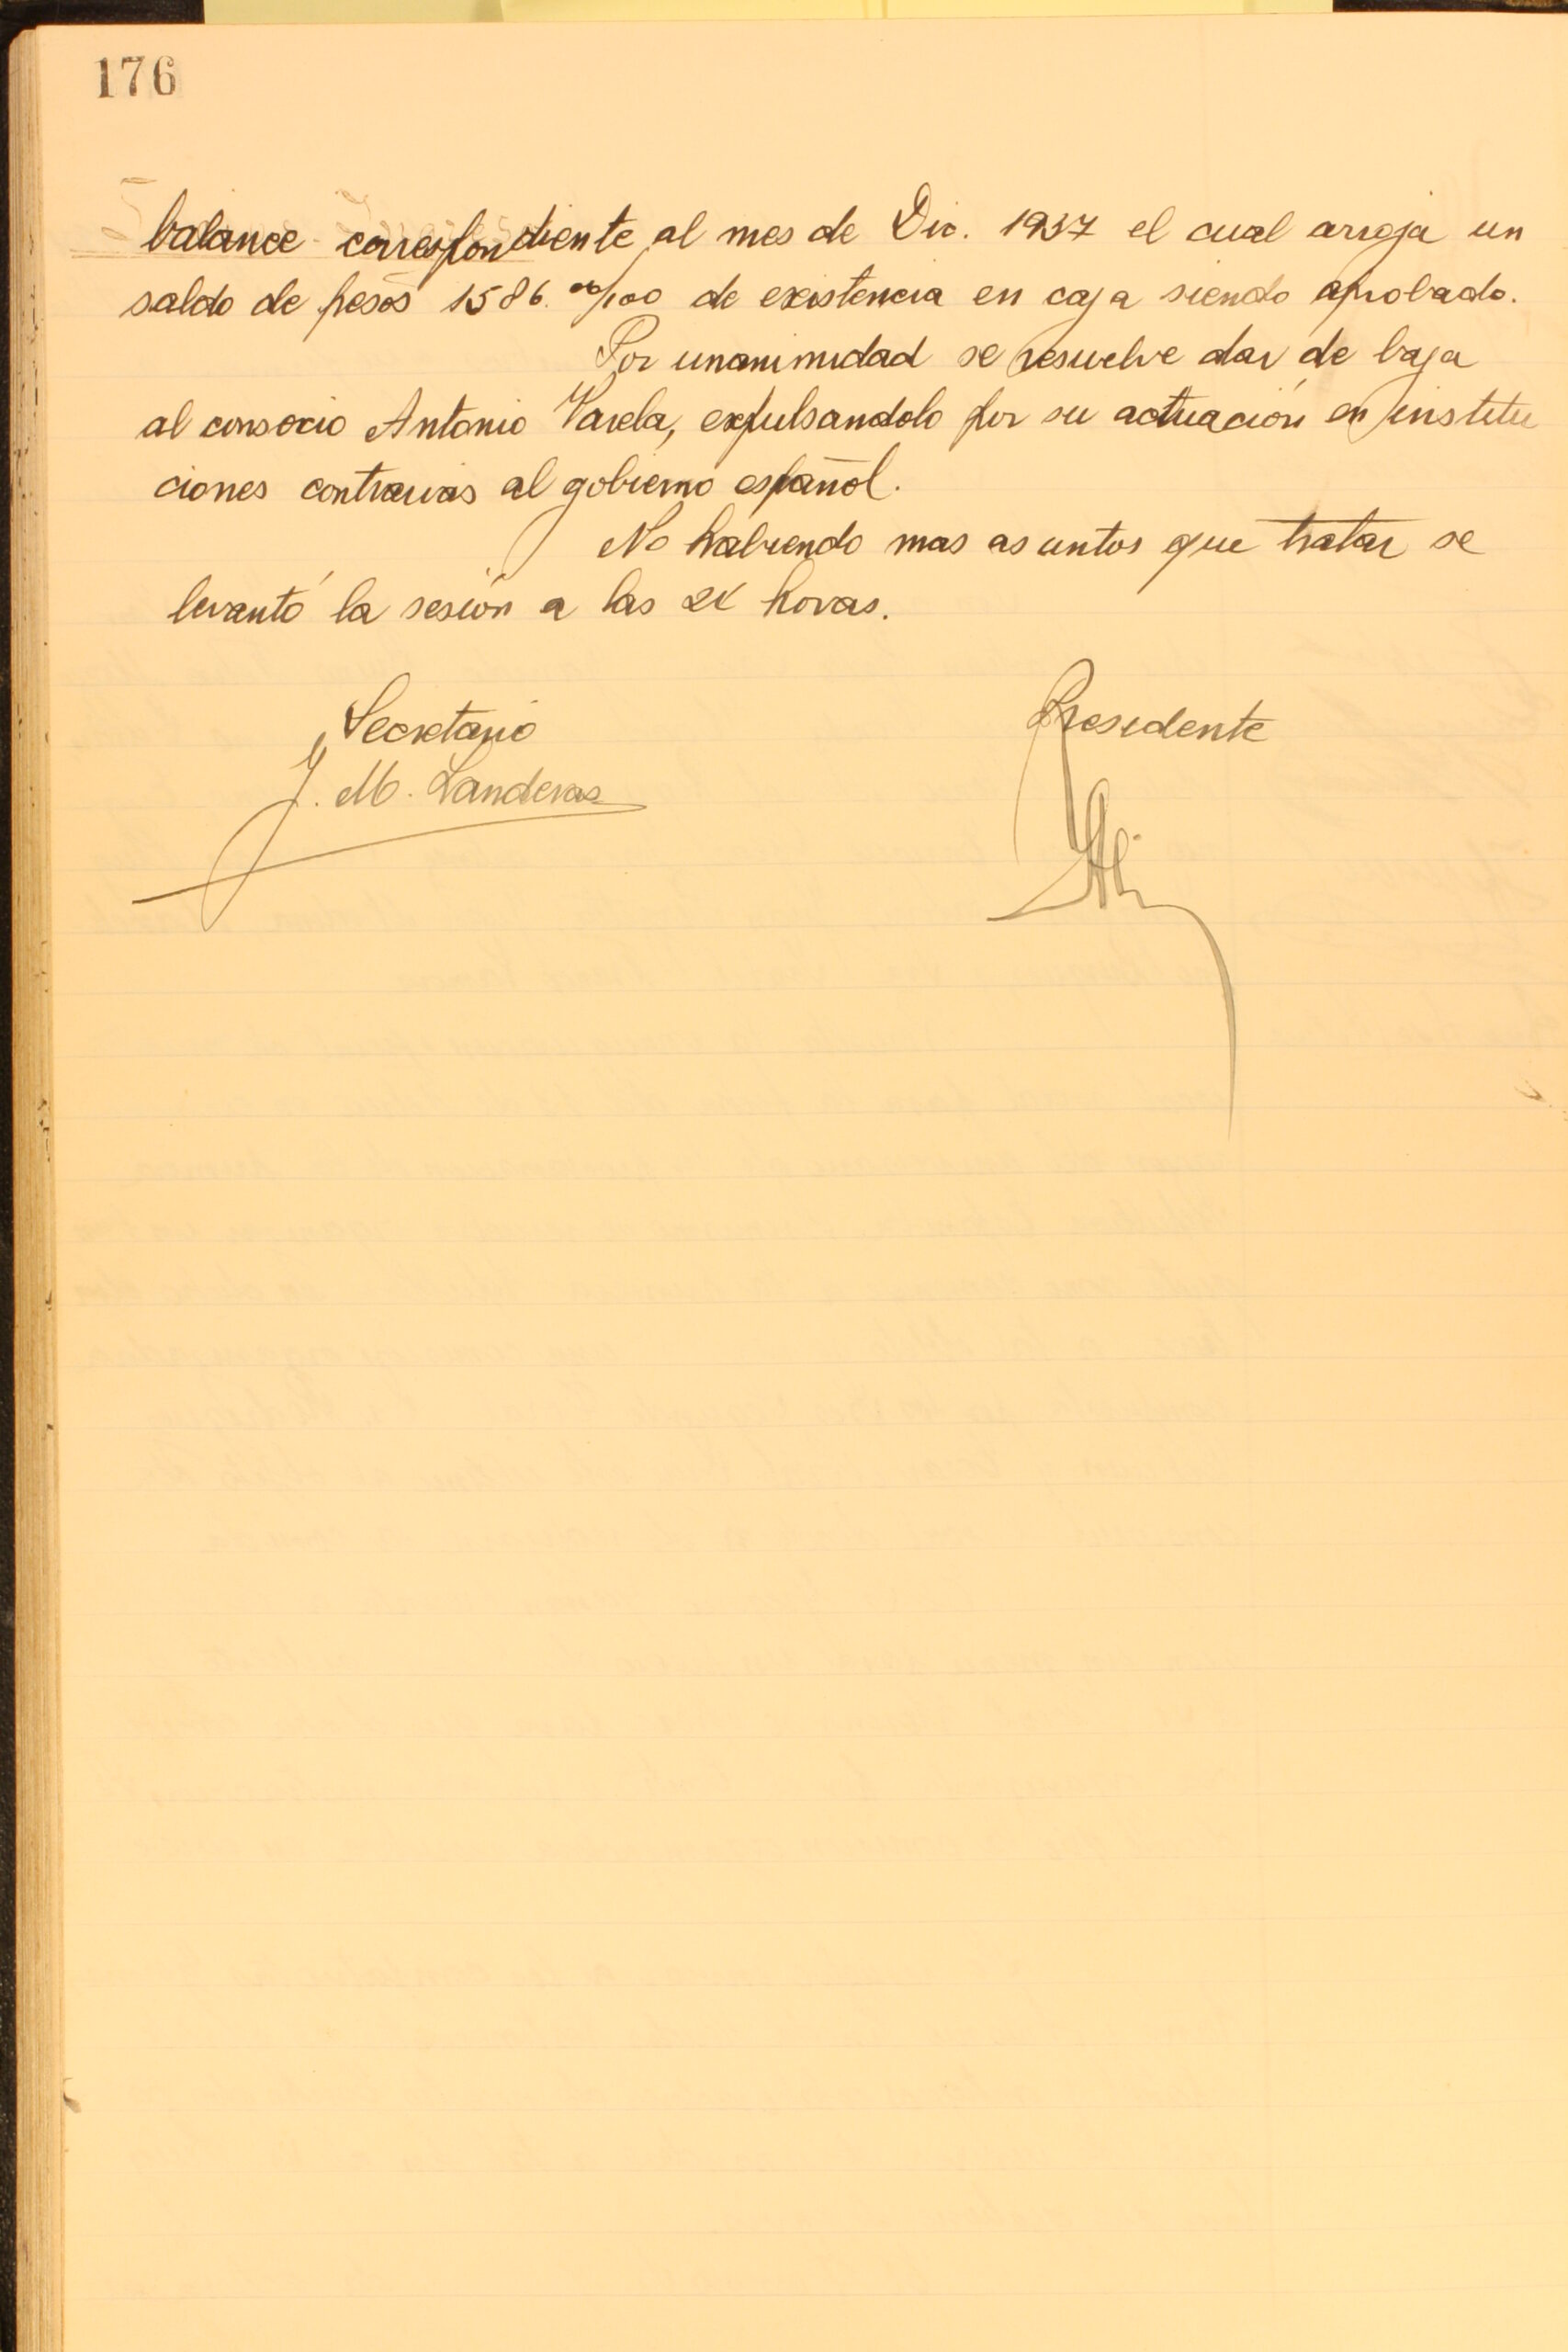 176
balance correspondiente al mes de Dic. 1937 el cual arroja un
saldo de pesos 1586. 00/100 de existencia en caja siendo aprobado.
Por unanimidad se resuelve dar de baja
al consocio Antonio Varela, expulsandolo por su actuación en institu
ciones contrarias al gobierno español.
No habiendo mas asuntos que tratar se
levantó la sesión a las horas.
Secretario
Presidente
J. M. Landeras